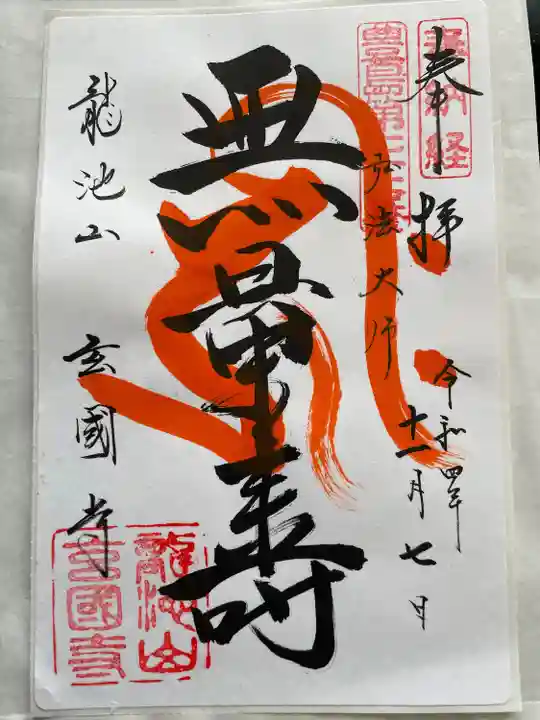 奉拝
奉納経
令和四年
十一月七日
弘法大師
無量寿
龍池山
玄國寺
龍池山
玄國寺